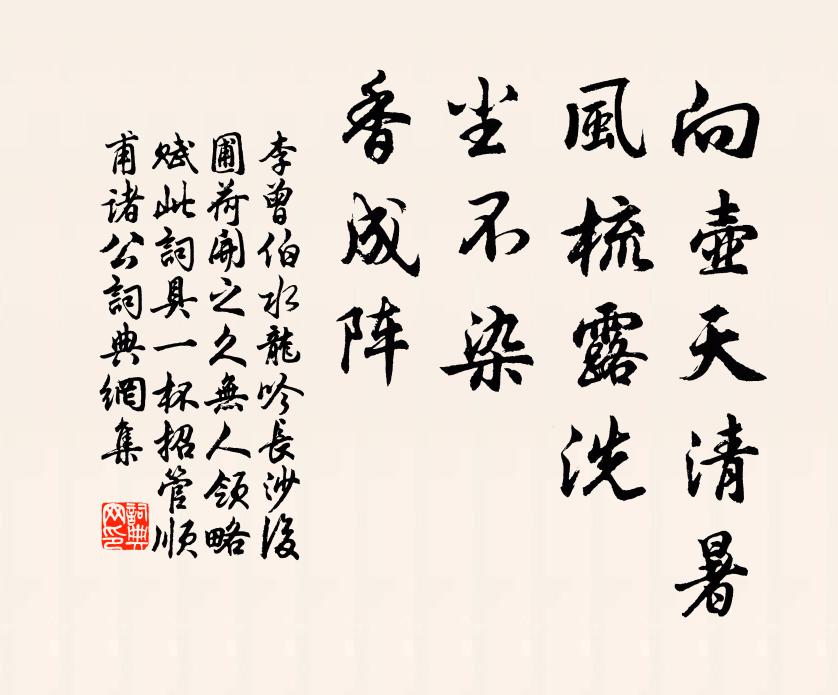 向壺天清暑
風梳露洗
尘不染
香成阵
李曾伯水龍吟長沙後
圃荷開之久無人領略
賦此詞具一杯招管順
甫诸公詞典網集
詞典
网印